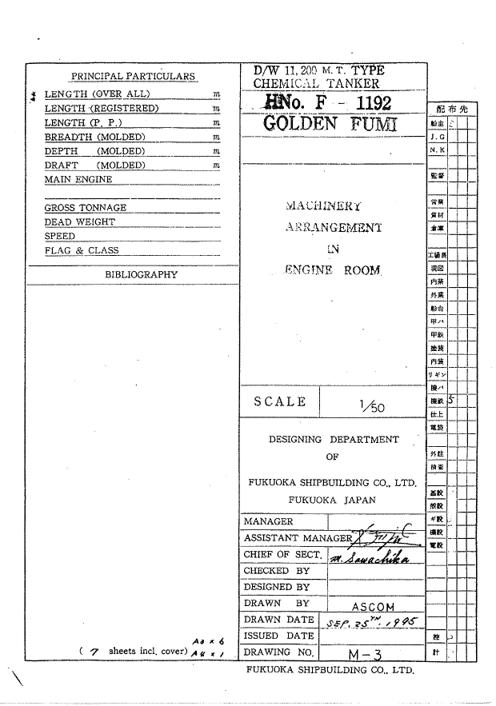 PRINCIPAL PARTICULARS
LENGTH (OVER ALL) m
LENGTH (REGISTERED) m
LENGTH (P. P.) m
BREADTH (MOLDED) m
DEPTH (MOLDED) m
DRAFT (MOLDED) m
MAIN ENGINE
GROSS TONNAGE
DEAD WEIGHT
SPEED
FLAG & CLASS
BIBLIOGRAPHY
( 7 sheets incl. cover) A3 × 6
A4 × 1
D/W 11,200 M. T. TYPE
CHEMICAL TANKER
HNo. F - 1192
GOLDEN FUMI
MACHINERY
ARRANGEMENT
IN
ENGINE ROOM
SCALE 1/50
DESIGNING DEPARTMENT
OF
FUKUOKA SHIPBUILDING CO., LTD.
FUKUOKA JAPAN
MANAGER
ASSISTANT MANAGER
CHIEF OF SECT. M. Sawachika
CHECKED BY
DESIGNED BY
DRAWN BY ASCOM
DRAWN DATE SEP. 25TH. 1995
ISSUED DATE
DRAWING NO. M-3
FUKUOKA SHIPBUILDING CO., LTD.
配布先
船主
J.G
N.K
監督
営業
資材
倉庫
工場長
現図
内業
外業
船台
甲パ
甲鉄
塗装
内装
リギン
機パ
機鉄 5
仕上
電装
外註
検査
基設
船設
ギ設
機設
電設
控
計